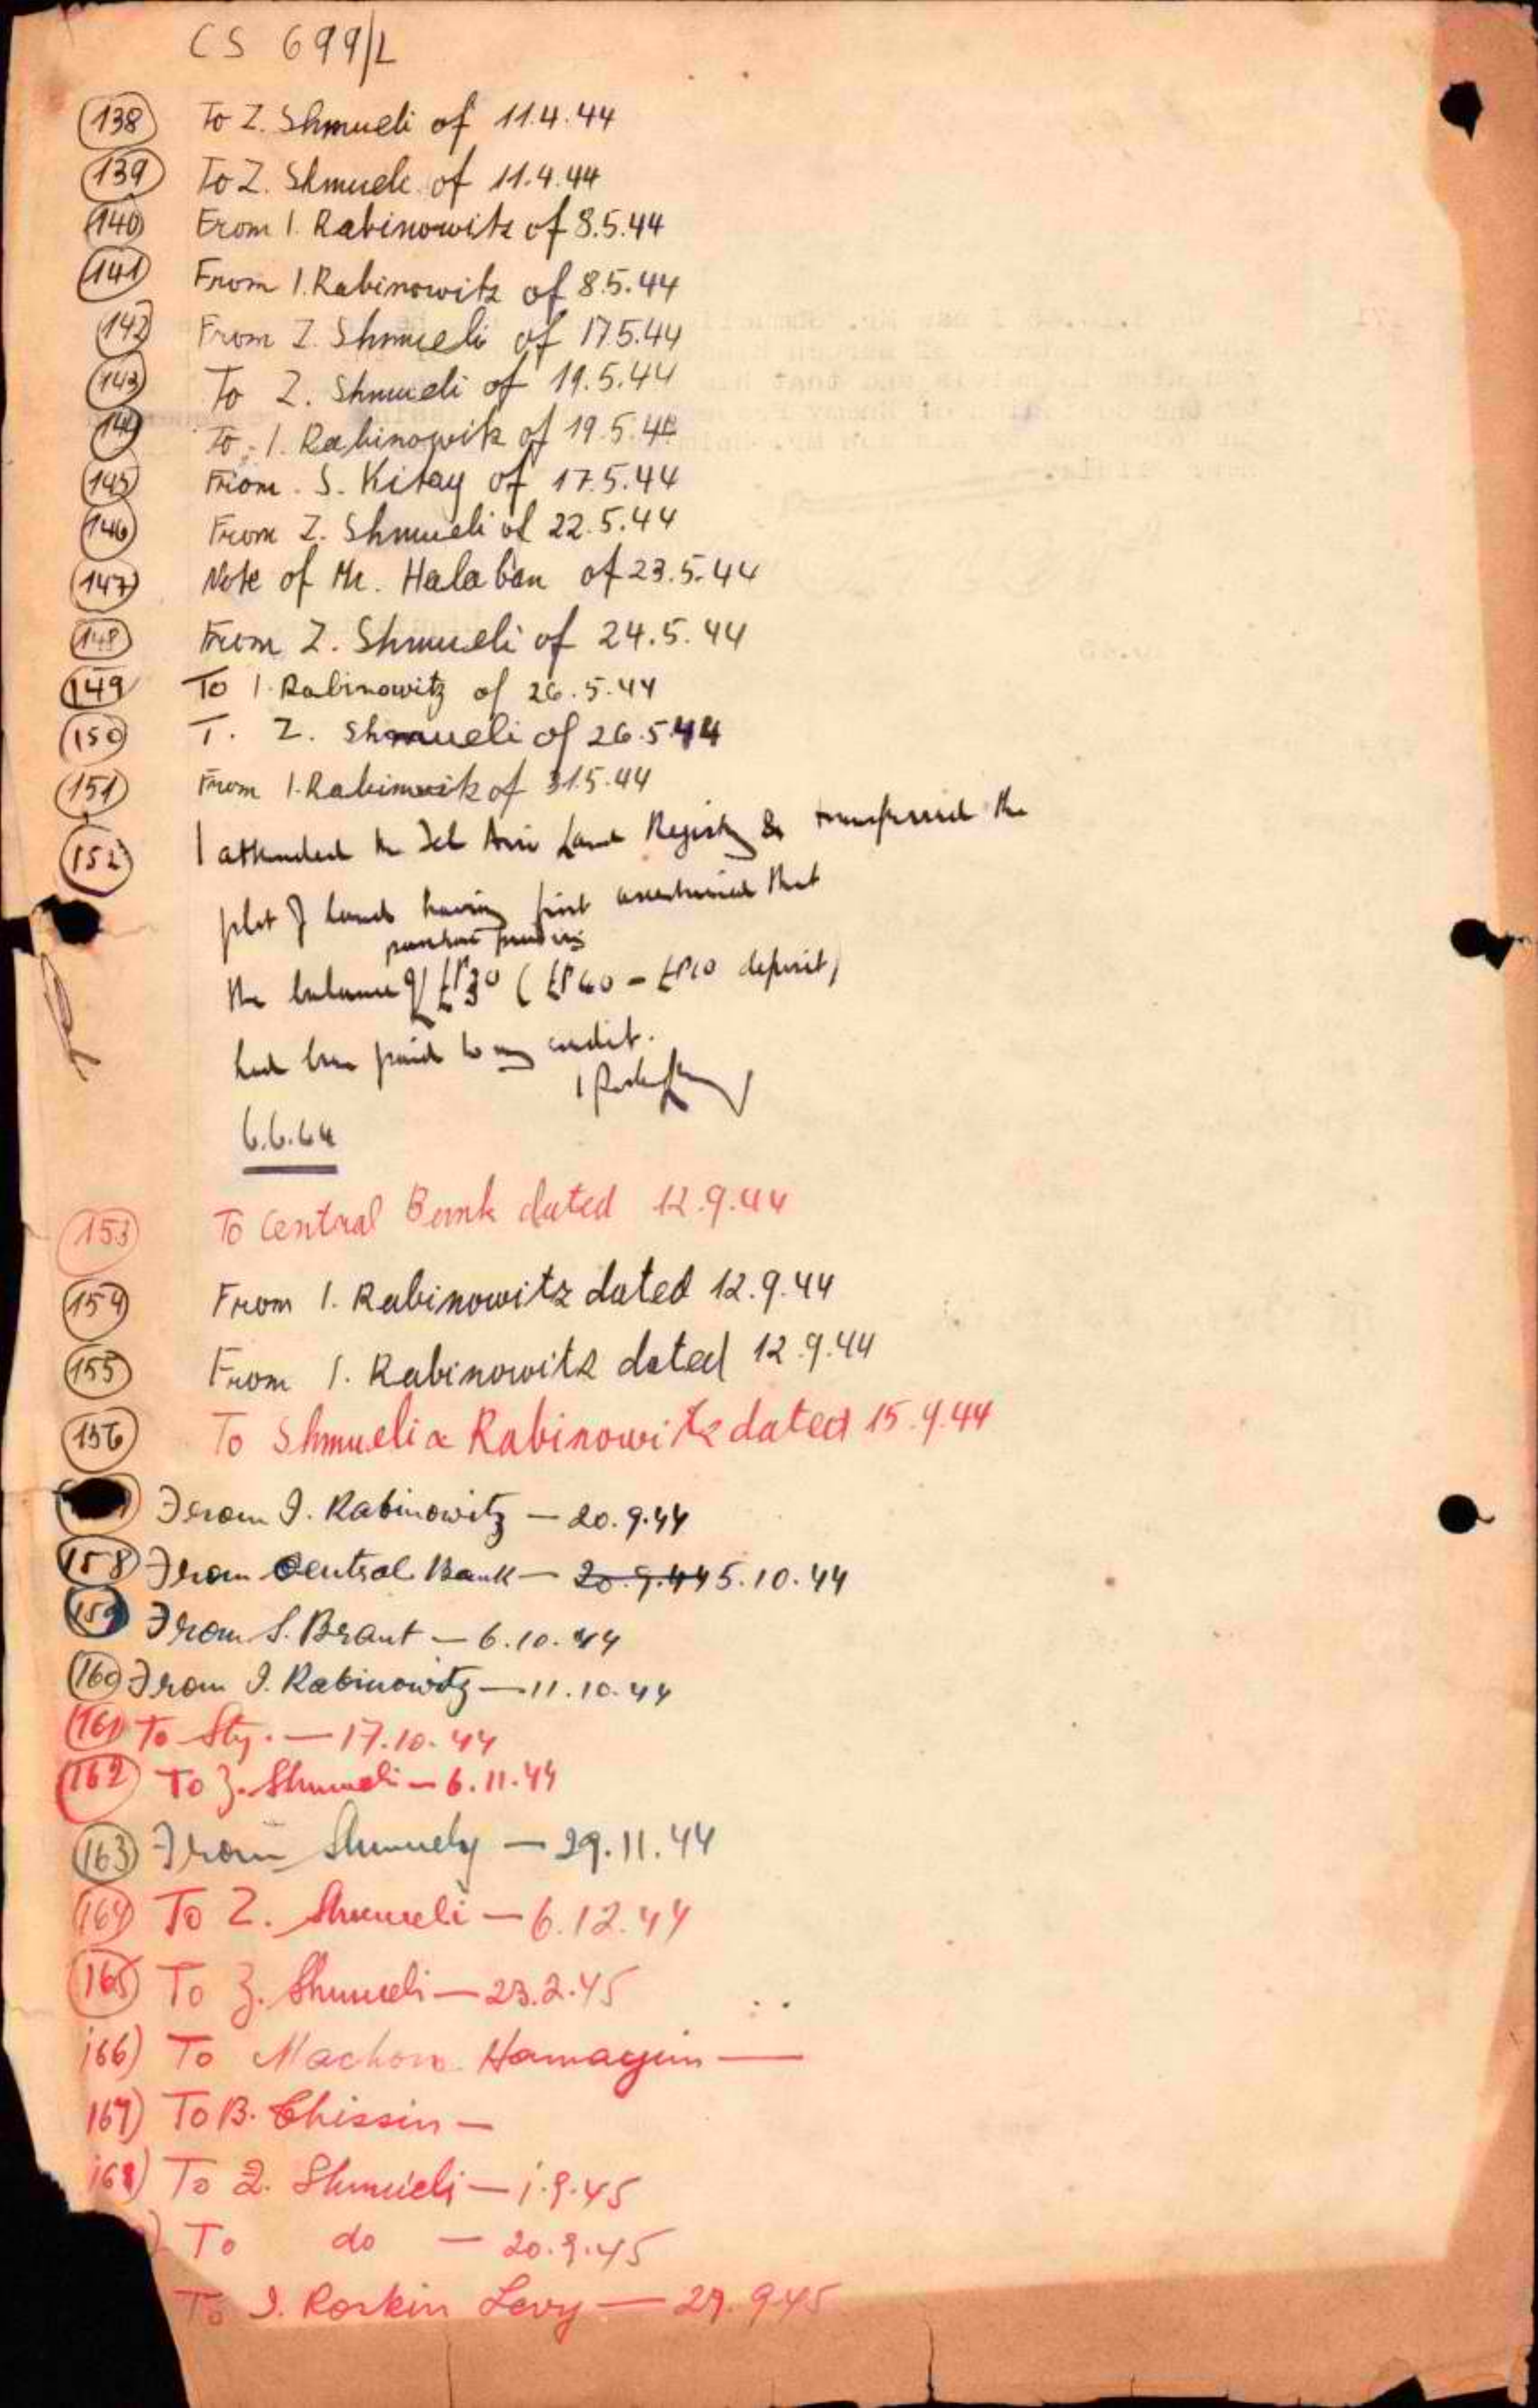 CS 699/L
138 To Z. Shmueli of 11.4.44
139 To Z. Shmueli of 11.4.44
140 From I. Rabinowitz of 8.5.44
141 From I. Rabinowitz of 8.5.44
142 From Z. Shmueli of 17.5.44
143 To Z. Shmueli of 19.5.44
144 To I. Rabinowitz of 19.5.44
145 From S. Kitay of 17.5.44
146 From Z. Shmueli of 22.5.44
147 Note of Mr. Halaban of 23.5.44
148 From Z. Shmueli of 24.5.44
149 To I. Rabinowitz of 26.5.44
150 T. Z. Shmueli of 26.5.44
151 From I. Rabinowitz of 31.5.44
152 I attended the Tel Aviv Land Registry & transferred the
plot of land having first ascertained that
purchase
the balance of £P30 (£P40 - £P10 deposit)
had been paid to my credit.
6.6.44
153 To Central Bank dated 12.9.44
154 From I. Rabinowitz dated 12.9.44
155 From I. Rabinowitz dated 12.9.44
156 To Shmueli & Rabinowitz dated 15.9.44
From I. Rabinowitz — 20.9.44
158 From Central Bank — 20.9.44 5.10.44
159 From S. Braut — 6.10.44
160 From I. Rabinowitz — 11.10.44
161 To Sty. — 17.10.44
162 To Z. Shmueli — 6.11.44
163 From Shmuely — 29.11.44
164 To Z. Shmueli — 6.12.44
165 To Z. Shmueli — 23.2.45
166) To Machon Hamagin —
167) To B. Chissin —
168) To Z. Shmueli — 1.9.45
) To do — 20.9.45
To I. Roskin Levy — 27.9.45